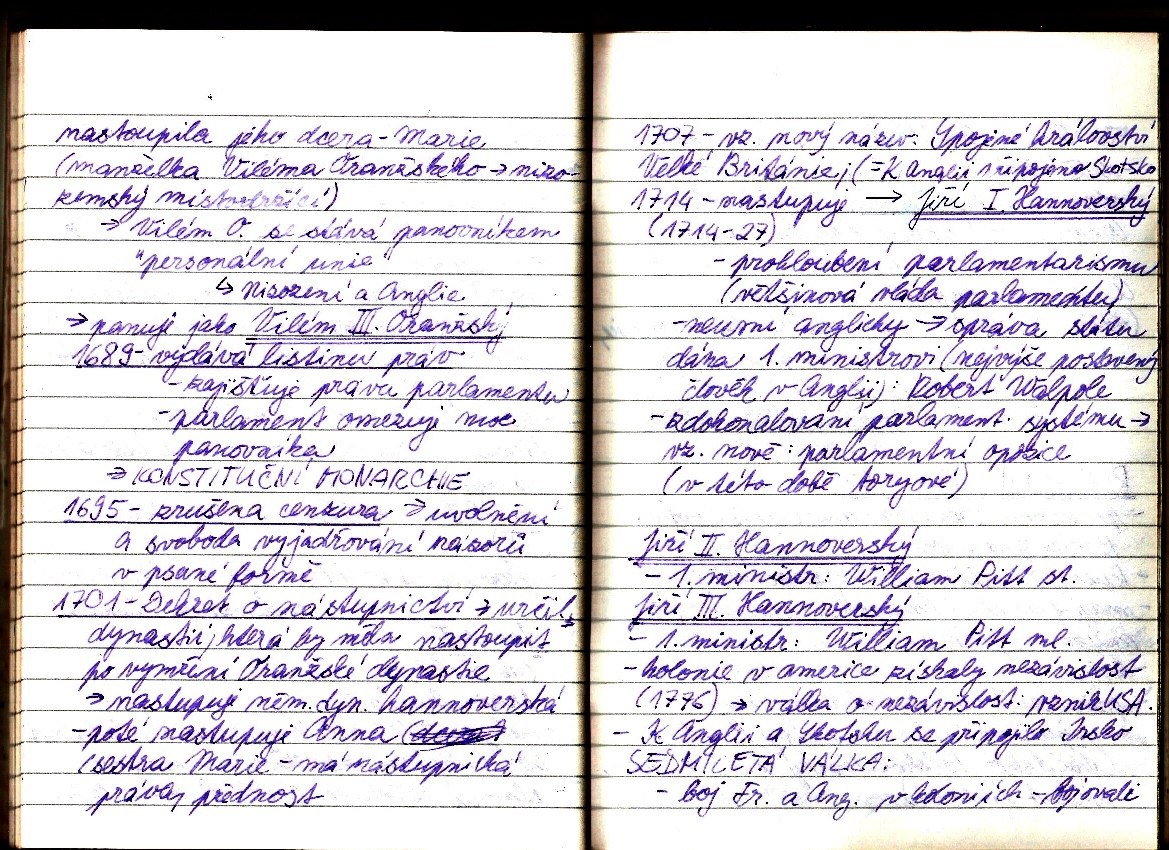 nastoupila jeho dcera - Marie
(manželka Viléma Oranžského → nizo-
zemský místodržící)
→ Vilém O. se stává panovníkem
"personální unie"
↳ Nizozemí a Anglie
→ panuje jako Vilém III. Oranžský
1689 - vydává listinu práv
- zajišťuje práva parlamentu
- parlament omezuje moc
panovníka
→ KONSTITUČNÍ MONARCHIE
1695 - zrušena cenzura → uvolnění
a svoboda vyjadřování názorů
v psané formě
1701 - Dekret o nástupnictví → určil,
dynastii, která by měla nastoupit
po vymření Oranžské dynastie
→ nastupuje něm. dyn. hannoverská
- poté nastupuje Anna
(sestra Marie - má nástupnická
práva, přednost
1707 - vz. nový název: Spojené království
Velké Británie, (= K Anglii připojeno Skotsko
1714 - nastupuje → Jiří I. Hannoverský
(1714-27)
- prohloubení parlamentarismu
(většinová vláda parlamentu)
- neumí anglicky → správa státu
dána 1. ministrovi (nejvýše postavený
člověk v Anglii): Robert Walpole
- zdokonalování parlament. systému →
vz. nově: parlamentní opozice
(v této době toryové)
Jiří II. Hannoverský
- 1. ministr: William Pitt st.
Jiří III. Hannoverský
- 1. ministr: William Pitt ml.
- kolonie v americe získaly nezávislost
(1776) → válka o nezávislost: vznik USA.
- K Anglii a Skotsku se připojilo Irsko
SEDMILETÁ VÁLKA:
- boj Fr. a Ang. v koloniích - bojovali